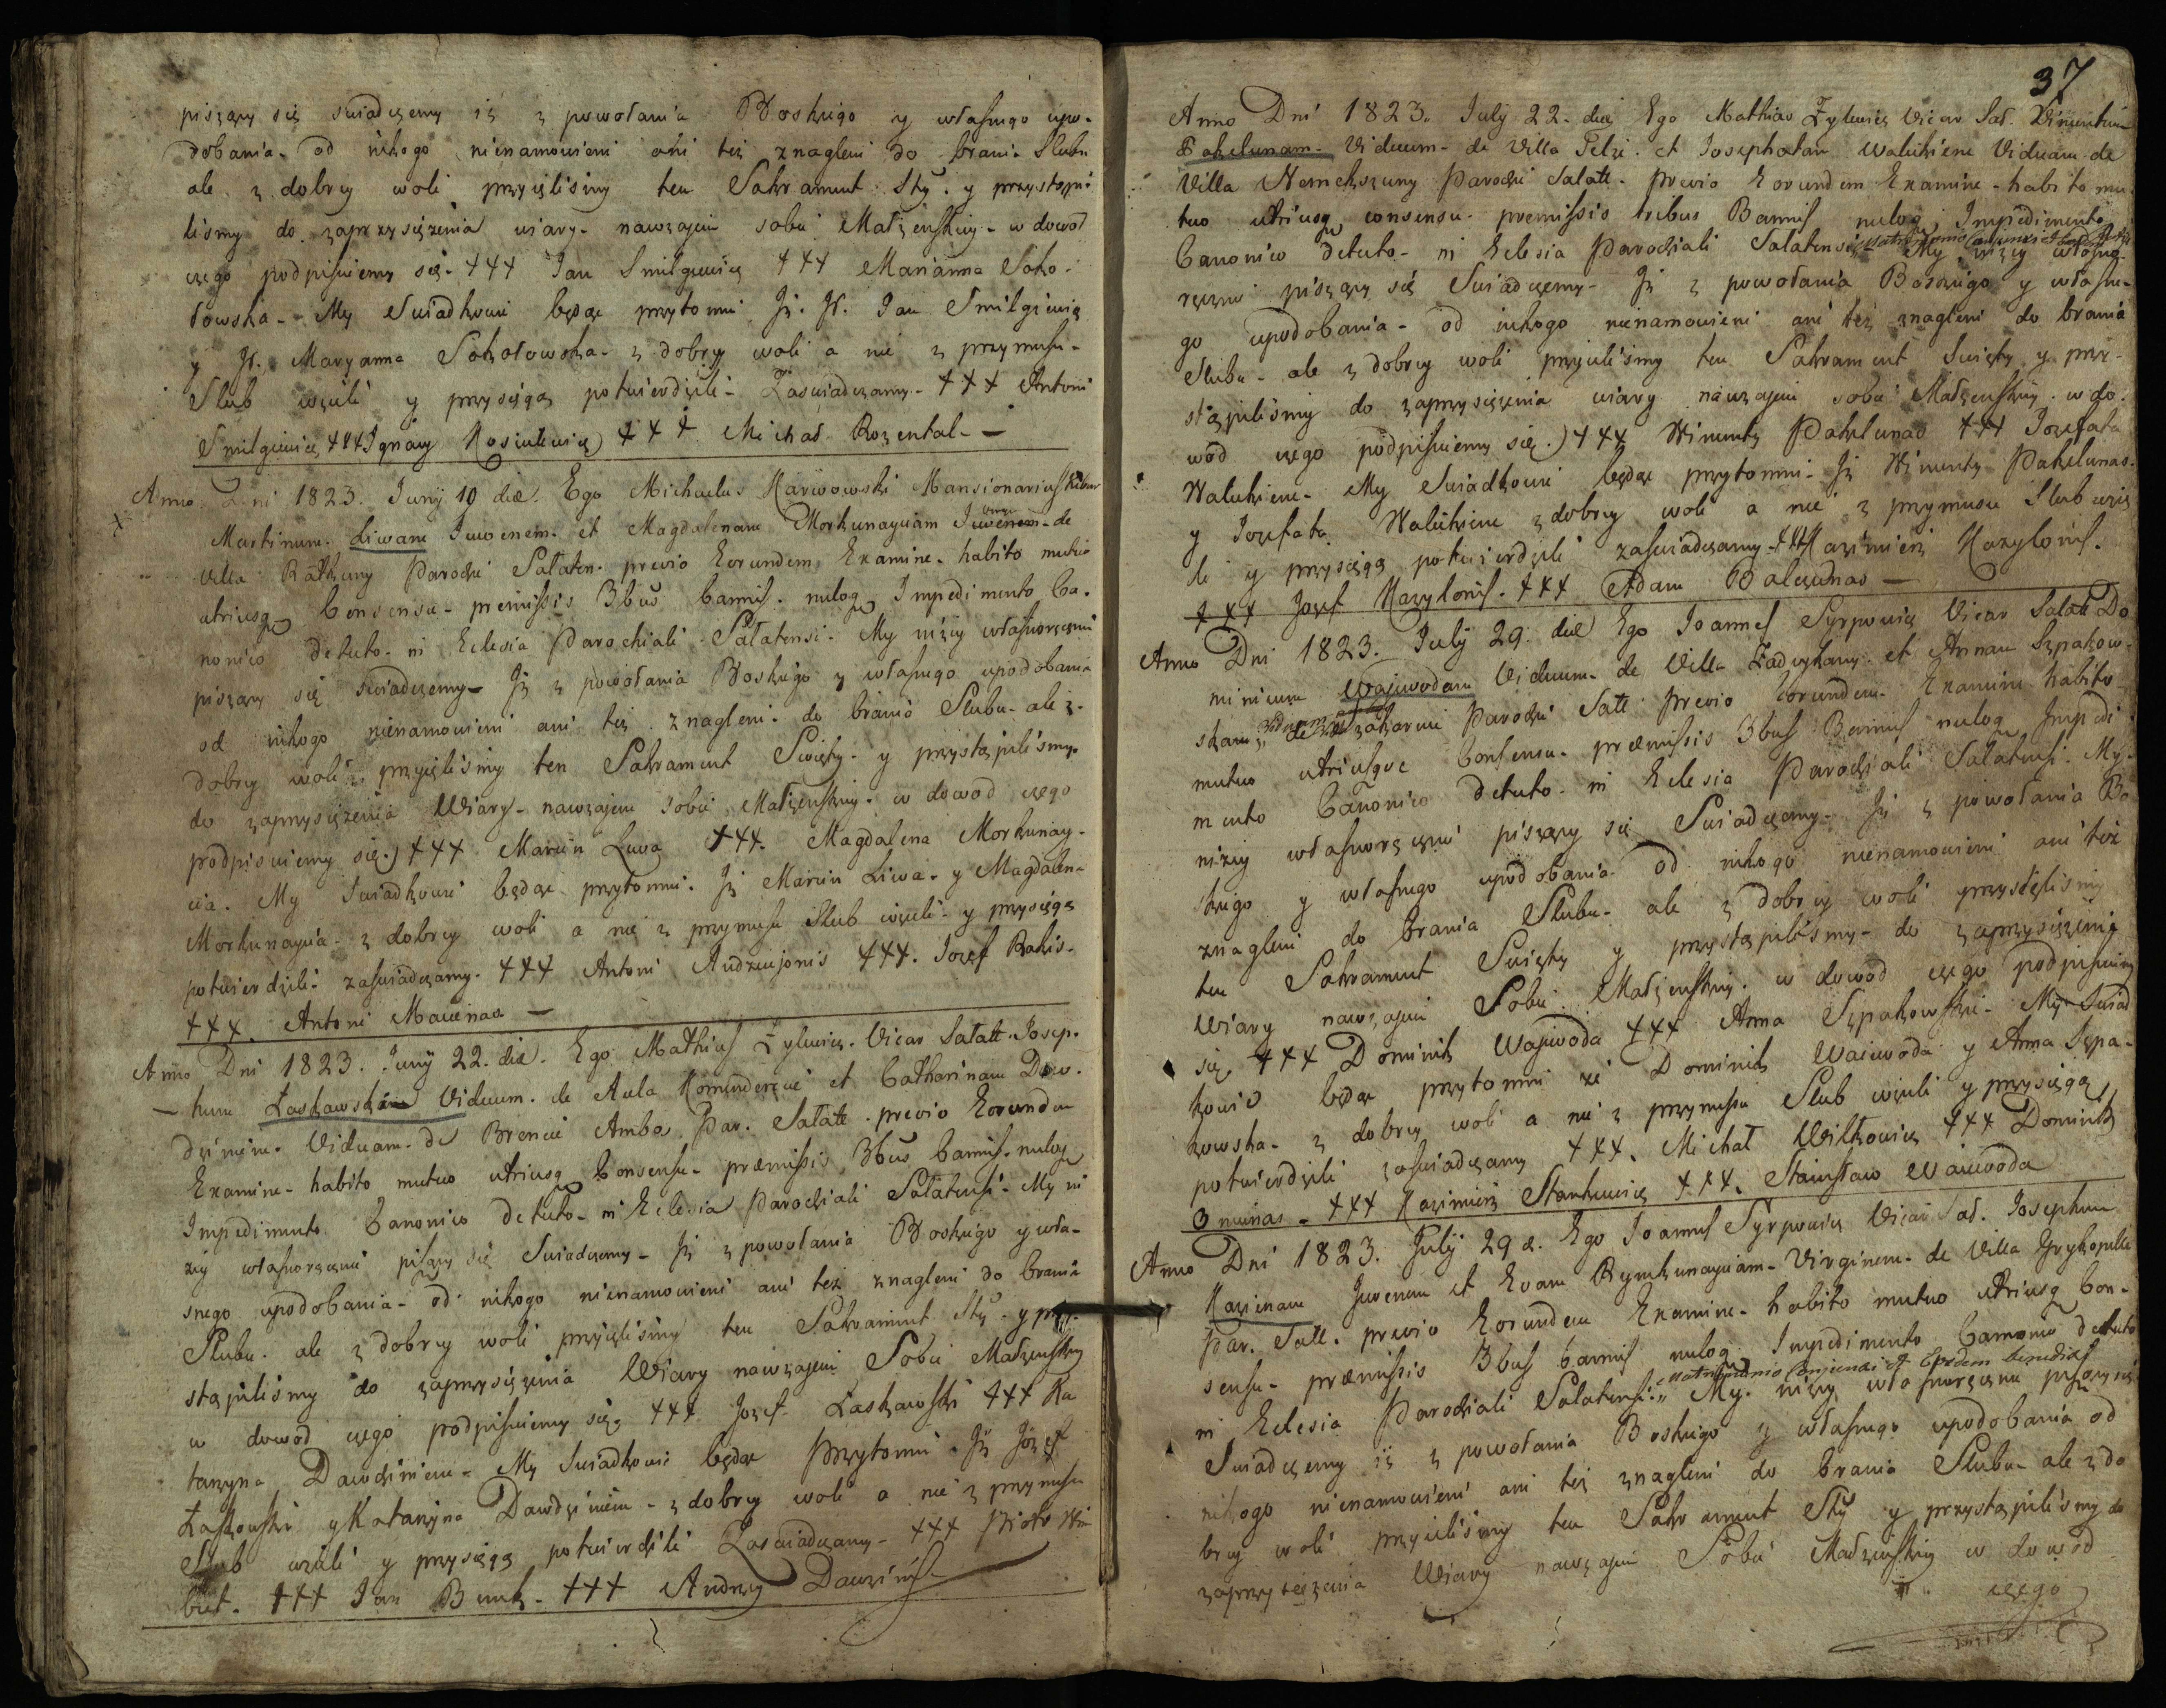 piszący się swiadczemy iż z powołania Boskiego y własnego upo-
dobania od nikogo nienamowieni ani też znagleni do brania Slubu
ale z dobrey woli przyieliśmy ten Sakrament Sty. y przystąpi
liśmy do zaprzysiężenia wiary nawzajem sobie Małzenskiey w dowod
czego podpisuiemy się. +++ Jan Smilgiewicz +++ Marianna Soko-
łowska. My Swiadkowie będąc przytomni Iż. Jan Smilgiewicz
y Maryanna Sokołowska z dobrey woli a nie z przymusu
Slub wzieli y przysięgą potwierdzili Zaswiadczamy. +++ Antoni
Smilgiewicz +++ Ignacy +++ Michał Rozental —
Anno Dni 1823. Juny 10 die. Ego Michaelus Mansionarius
Martinum Liwam Juvenem et Magdalenam Morkunayciam Juvenem de
Villa Parochi Salaten. previo Eorundem Examine habito mutuo
utriusq Consensu premissis 3bus bannis nuloq Impedimento Ca-
nonico detecto in Eclesia Parochiali Sałatensi. My niżey własnoręcznie
piszący się swiadczemy Iż z powołania Boskiego y własnego upodobania
od nikogo nienamowieni ani też znagleni do brania Slubu ale z
dobrey woli przyieliśmy ten Sakrament Swięty y przystąpiliśmy
do zaprzysiężenia Wiary nawzajem sobie Małzenskiey w dowod czego
podpisuiemy się.) +++ Marcin Luwa +++ Magdalena Morkunay-
cia. My Swiadkowie będąc przytomni Iż Marcin Liwa y Magdalena
Morkunaycia z dobrey woli a nie z przymusu Slub wzieli y przysięgą
potwierdzili zaswiadczamy. +++ Antoni Andrzeijonis +++ Jozef Rakis
+++ Antoni —
Anno Dni 1823. Juny 22. die. Ego Mathias Zylewicz Vicar Salatt. Josep-
hum Łaskawskim Viduum de Aula et Catharinam Daw-
dziniene Viduam de Par. Sałatt. previo Eorundem
Examine habito mutuo utriusq Consensu præmissis 3bus bannis nuloq
Impedimento Canonico detecto in Eclesia Parochiali Sałatensi. My ni
żey własnoręcznie piszący się Swiadczemy Iż z powołania Boskiego y wła-
snego upodobania od nikogo nienamowieni ani też znagleni do brania
Slubu ale z dobrey woli przyieliśmy ten Sakrament Sty y przy-
stąpiliśmy do zaprzysiężenia Wiary nawzajem Sobie Małzenskiey
w dowod czego podpisuiemy się. +++ Jozef Łaskawski +++ Ka
tarzyna Dawdziniene. My Swiadkowie będąc Przytomni Iż Jozef
Łaskowski y Katarzyna Dawdziniene z dobrey woli a nie z przymusu
Slub wzieli y przysięgą potwierdzili Zaswiadczamy. +++ Piotr
+++ Jan +++ Andrzey
37
Anno Dni 1823. July 22. die Ego Mathias Zylewicz Vicar Sał. Vincentium
Pakelunam Viduum de Villa Pelzi et Josephatam Walukiene Viduam de
Villa Parochi Salatt. previo Eorundem Examine habito mu
tuo utriusq consensu premissis tribus Bannis nuloq Impedimento
Canonico detecto in Eclesia Parochiali Salatensi My niżey własno
ręcznie piszący się Swiadczemy Iż z powołania Boskiego y własne-
go upodobania od nikogo nienamowieni ani też znagleni do brania
Slubu ale z dobrey woli przyieliśmy ten Sakrament Swięty y przy-
stąpiliśmy do zaprzysiężenia wiary nawzajem sobie Małzenskiey w do-
wod czego podpisuiemy się.) +++ Wincenty Pakelunas +++ Jozefata
Walukiene. My Swiadkowie będąc przytomni Iż Wincenty Pakelunas
y Jozefata Walukiene z dobrey woli a nie z przymusu Slub wzie
li y przysięgą potwierdzili zaswiadczamy. +++ Kazimierz
+++ Jozef +++ Adam —
Anno Dni 1823. July 29. die Ego Joannes Syrpowicz Vicar Salatt Do
minicum Wajwodam Viduum de Villa et Annam Szpakow-
skam Viduam de Parochi Satt previo Eorundem Examine habito
mutuo utriusque Consensu præmissis 3bus Bannis nuloq Impedi
mento Canonico detecto in Eclesia Parochiali Salatensi. My
niżey własnoręcznie piszący się Swiadczemy Iż z powołania Bo
skiego y własnego upodobania od nikogo nienamowieni ani też
znagleni do brania Slubu ale z dobrey woli przyieliśmy
ten Sakrament Swięty y przystąpiliśmy do zaprzysiężenia
Wiary nawzajem Sobie Małzenskiey w dowod czego podpisuiemy
się +++ Dominik Wajwoda +++ Anna Szpakowska My Swiad
kowie będąc przytomni iż Dominik Waiwoda y Anna Szpa-
kowska z dobrey woli a nie z przymusu Slub wzieli y przysięgą
potwierdzili zaswiadczamy +++ Michał Wilkowicz +++ Dominik
+++ Kazimierz Stankiewicz +++ Stanisław Waiwoda
Anno Dni 1823. July 29 d. Ego Joannes Syrpowicz Vicar Sał. Josephum
Juvenem et Evam Rymkunayciam Virginem de Villa
Par. Satt. previo Eorundem Examine habito mutuo utriusq Con-
sensu præmissis 3bus bannis nuloq Impedimento Canonico detecto
Matrimonio Conjunxi et
in Eclesia Parochiali Salatensi. My niżey własnoręcznie piszący się
Swiadczemy iż z powołania Boskiego y własnego upodobania od
nikogo nienamowieni ani też znagleni do brania Slubu ale z do
brey woli przyieliśmy ten Sakrament Sty y przystąpiliśmy do
zaprzysiężenia Wiary nawzajem Sobie Małzenskiey w dowod
czego